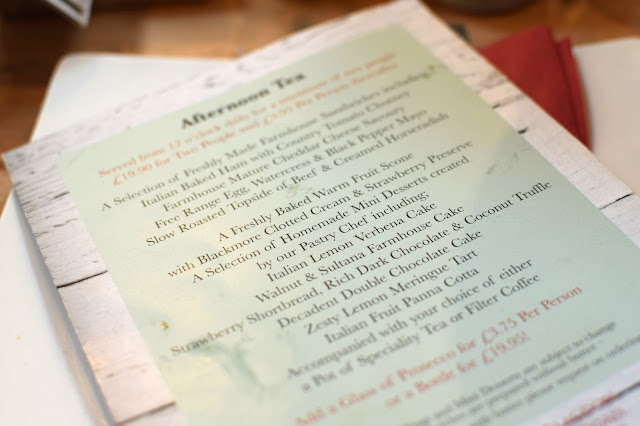 Afternoon Tea
Served from 12 o'clock daily for a minimum of two people
£19.90 for Two People and £9.95 Per Person thereafter
A Selection of Freshly Made Farmhouse Sandwiches including,*
Italian Baked Ham with Country Tomato Chutney
Farmhouse Mature Cheddar Cheese Savoury
Free Range Egg, Watercress & Black Pepper Mayo
Slow Roasted Topside of Beef & Creamed Horseradish
A Freshly Baked Warm Fruit Scone
with Blackmore Clotted Cream & Strawberry Preserve
A Selection of Homemade Mini Desserts created
by our Pastry Chef including;
Italian Lemon Verbena Cake
Walnut & Sultana Farmhouse Cake
Strawberry Shortbread, Rich Dark Chocolate & Coconut Truffle
Decadent Double Chocolate Cake
Zesty Lemon Meringue Tart
Italian Fruit Panna Cotta
Accompanied with your choice of either
a Pot of Speciality Tea or Filter Coffee
Add a Glass of Prosecco for £3.75 Per Person
or a Bottle for £19.95!
and Mini Desserts are subject to change
are prepared without butter
butter please request on